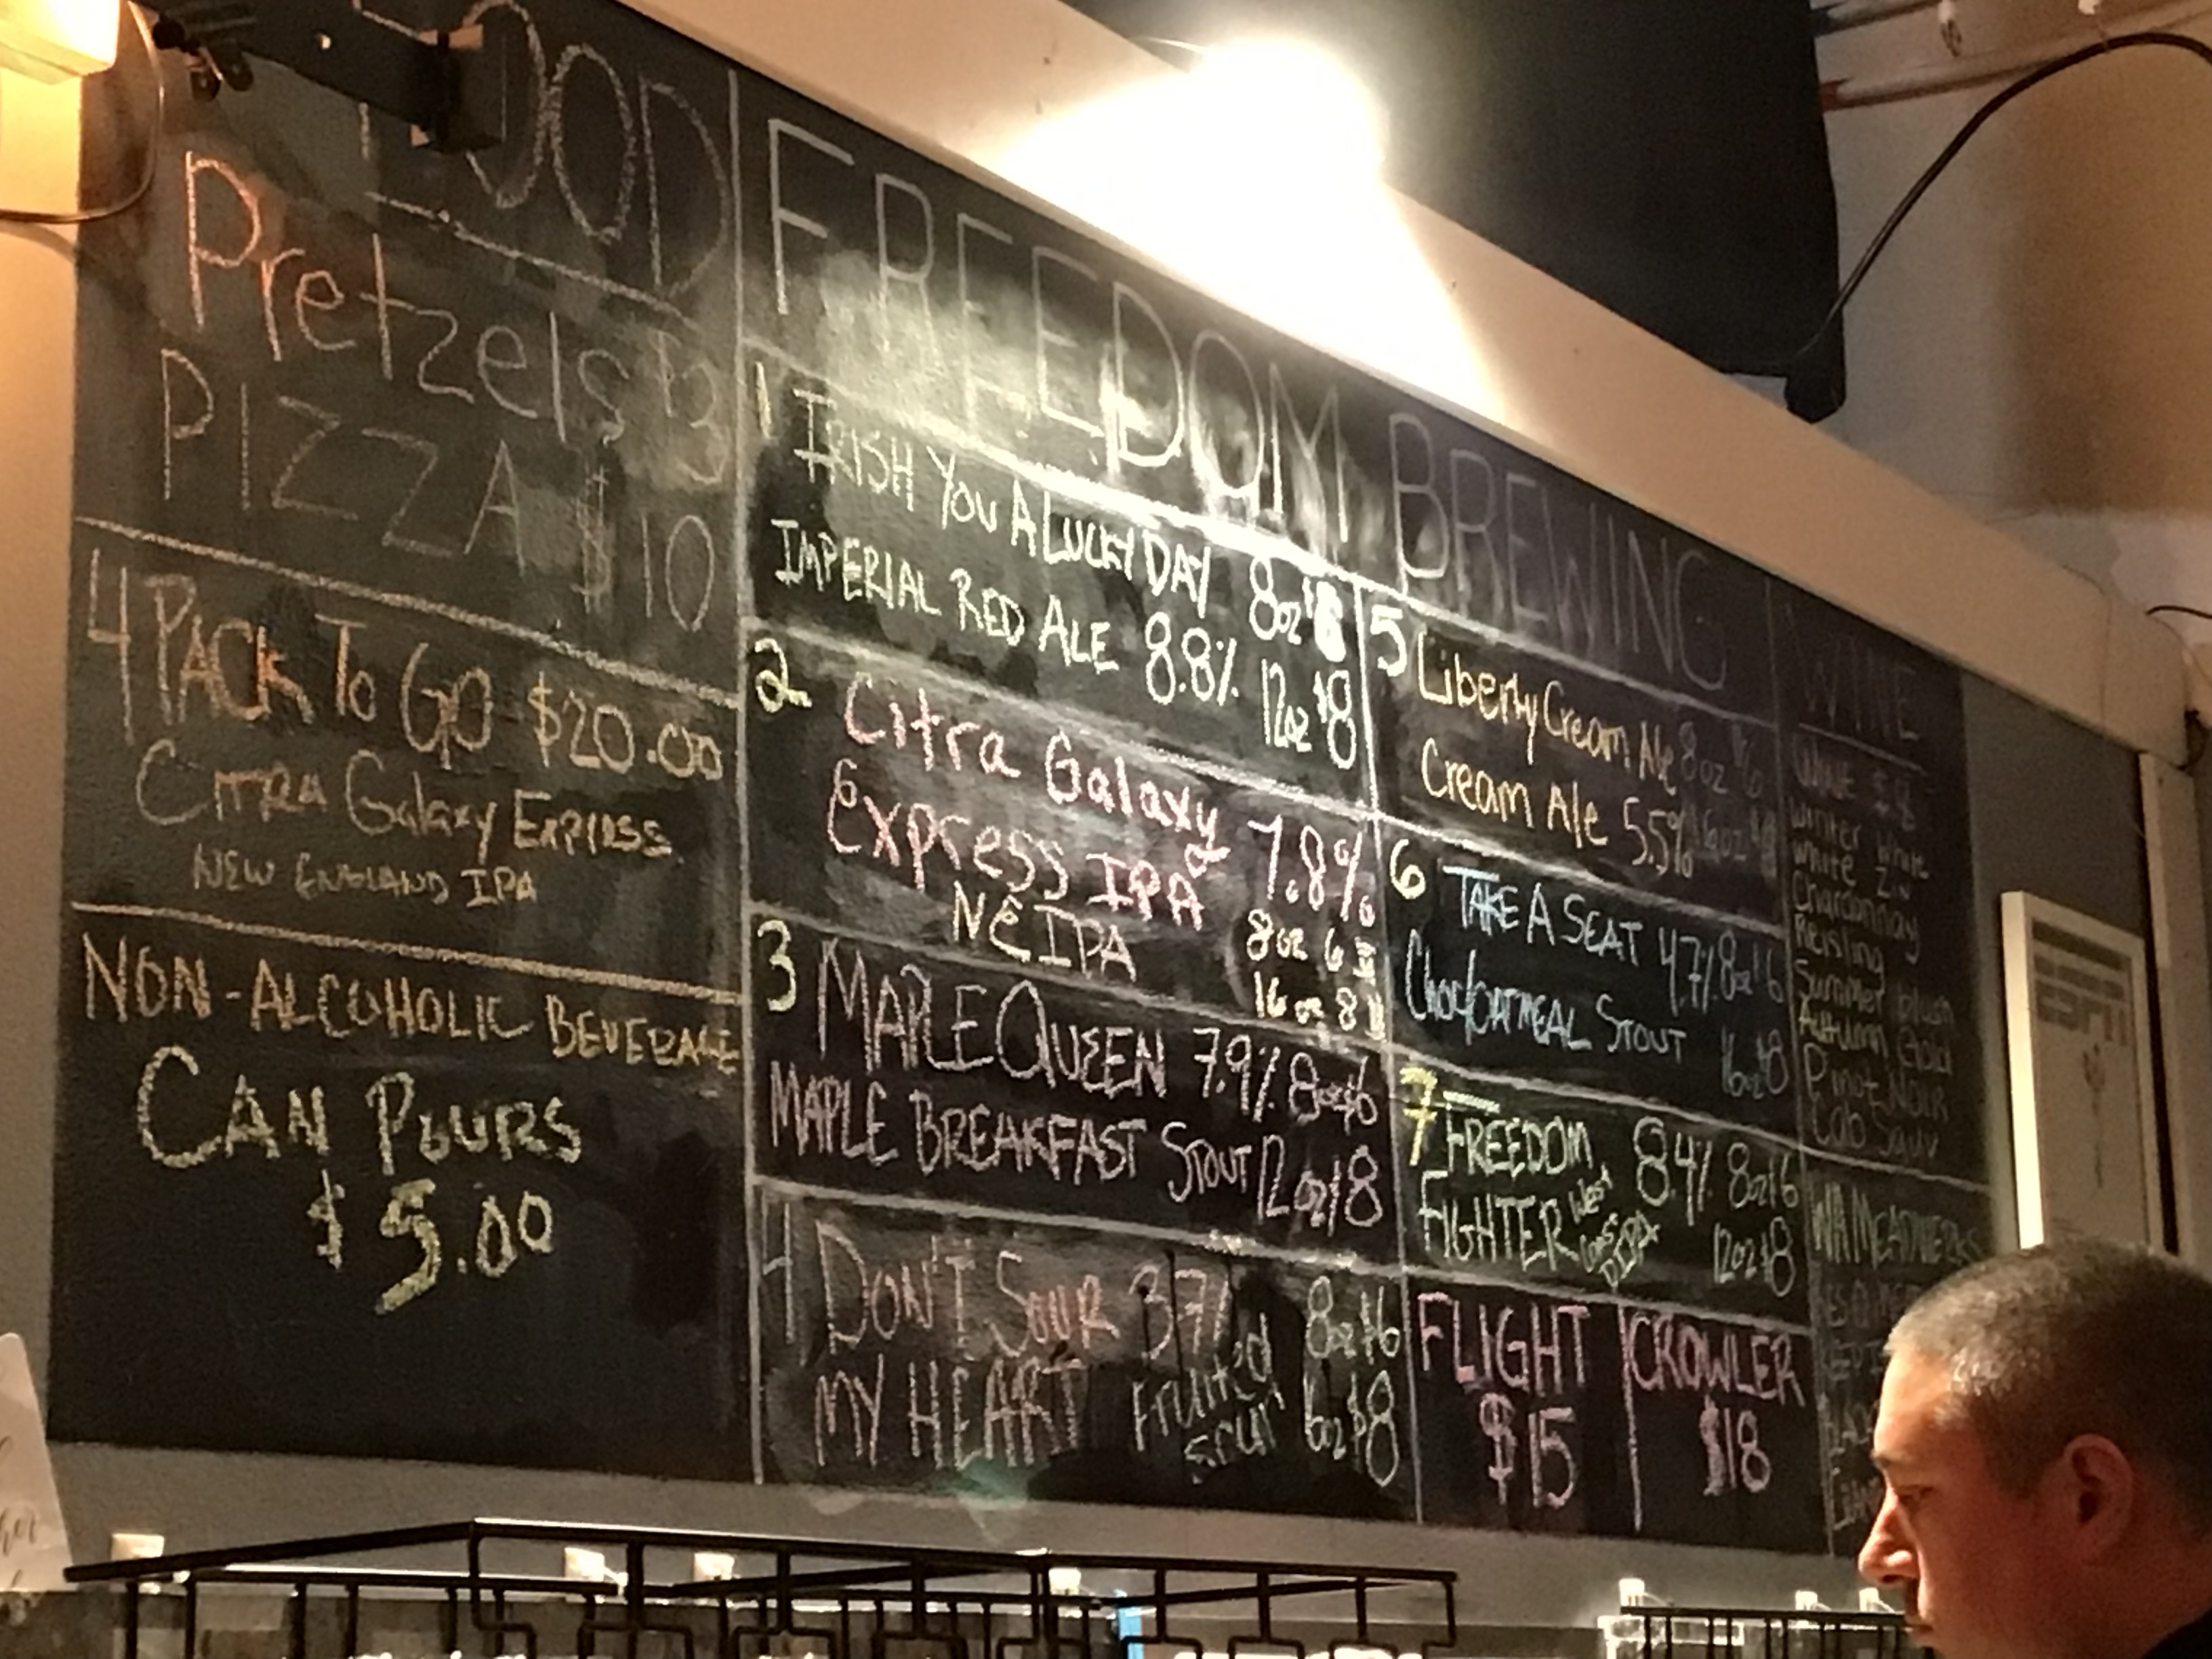 FOOD
Pretzels $3
PIZZA $10
4 PACK TO GO $20.00
CITRA Galaxy Express
NEW ENGLAND IPA
NON-ALCOHOLIC BEVERAGE
CAN POURS
$5.00
FREEDOM BREWING
1 IRISH YOU A LUCKY DAY 8oz $6
IMPERIAL RED ALE 8.8% 12oz $8
2 Citra Galaxy
Express IPA 7.8%
NE IPA 8oz 6
16 oz 8
3 MAPLE QUEEN 7.9% 8oz $6
MAPLE BREAKFAST STOUT 12oz $8
4 DON'T SOUR 3.7% 8oz $6
MY HEART Fruited Sour $8
5 Liberty Cream Ale 8oz $6
Cream Ale 5.5% 16oz
6 TAKE A SEAT 4.7% 8oz $6
Choc/OATMEAL STOUT 16oz $8
7 FREEDOM 8.4% 8oz $6
FIGHTER West Coast DIPA 12oz $8
FLIGHT
$15
CROWLER
$18
WINE
WINE $8
Winter White
White Zin
Chardonnay
Reisling
Summer blush
Autumn Gold
Pinot Noir
Cab Sauv
ESPN